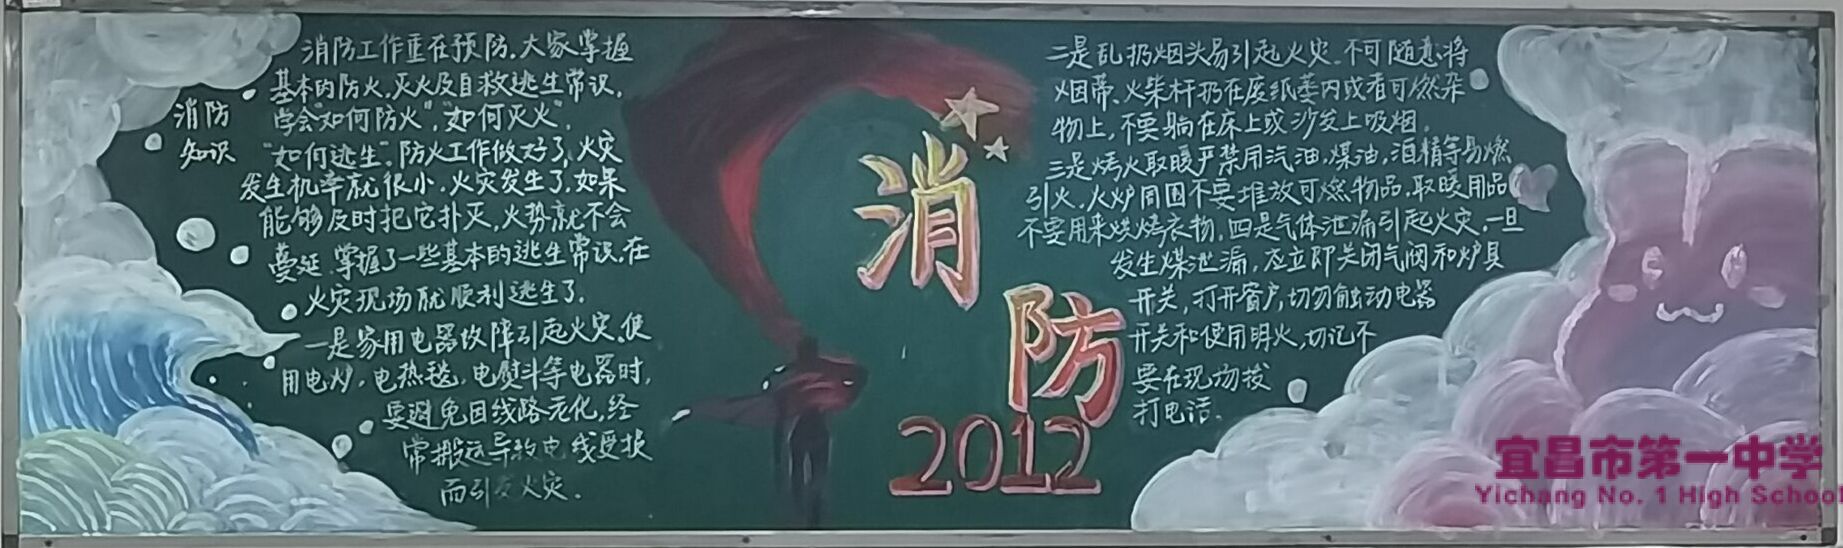 消防
知识
消防工作重在预防，大家掌握
基本的防火，灭火及自救逃生常识，
学会“如何防火”，“如何灭火”，
“如何逃生”。防火工作做好了，火灾
发生机率就很小，火灾发生了，如果
能够及时把它扑灭，火势就不会
蔓延，掌握了一些基本的逃生常识，在
火灾现场就顺利逃生了.
一是家用电器故障引起火灾。使
用电炉，电热毯，电熨斗等电器时，
要避免因线路老化，经
常搬运导致电线受损
而引发火灾。
消
防
2012
二是乱扔烟头易引起火灾。不可随意将
烟蒂、火柴杆扔在废纸篓内或者可燃杂
物上，不要躺在床上或沙发上吸烟。
三是烤火取暖严禁用汽油，煤油，酒精等易燃
引火，火炉周围不要堆放可燃物品，取暖用品
不要用来烘烤衣物，四是气体泄漏引起火灾，一旦
发生煤泄漏，应立即关闭气阀和炉具
开关，打开窗户，切勿触动电器
开关和使用明火，切记不
要在现场拨
打电话。
宜昌市第一中学
Yichang No. 1 High School